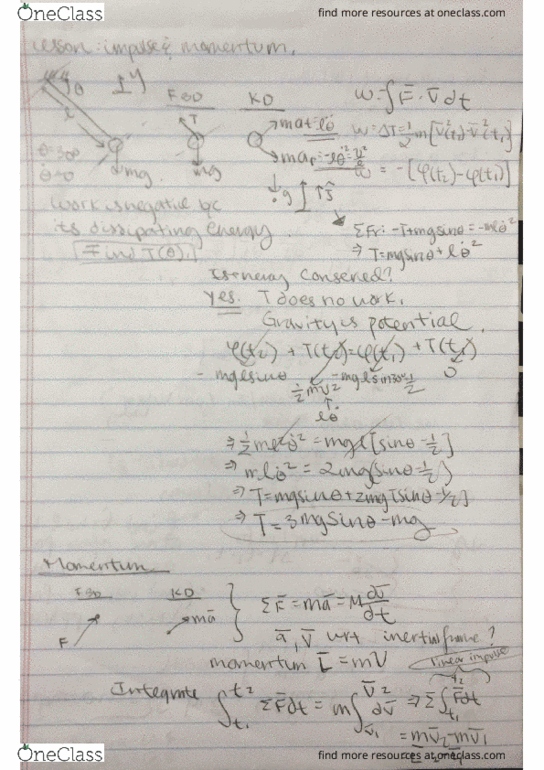 OneClass
find more resources at oneclass.com
Lesson: impulse & momentum.
θ ↑y FBD KD W=∫F̄·V̄dt
l T mat=lθ̈ W=ΔT=½m[V̄²(t₂)-V̄²(t₁)]
θ=30° mg
θ̇=0 mg = -[φ(t₂)-φ(t₁)]
work is negative bc
its dissipating energy.
Find T(θ).
ΣFr: -T+mgsinθ=-mlθ̇²
⇒ T=mgsinθ+lθ̇²
Is energy conserved?
yes. T does no work.
Gravity is potential.
φ(t₂) + T(t₂)=φ(t₁) + T(t₁)
- mglsinθ ½mv² -mglsin30=½ 0
lθ̇
⇒½ml²θ̇²=mgl[sinθ-½]
⇒mlθ̇²=2mg(sinθ-½)
⇒T=mgsinθ+2mg[sinθ-½]
⇒T=3mgSinθ-mg
Momentum
FBD KD ΣF̄=mā=M dv̄/dt
F mā
ā, V̄ wrt inertial frame?
momentum L̄=mV linear impulse
Integrate ∫t₁t₂ ΣF̄dt=m∫v̄₁v̄₂ dv̄ ⇒Σ∫t₁t₂ F̄dt
=mv̄₂-mv̄₁
OneClass
find more resources at oneclass.com